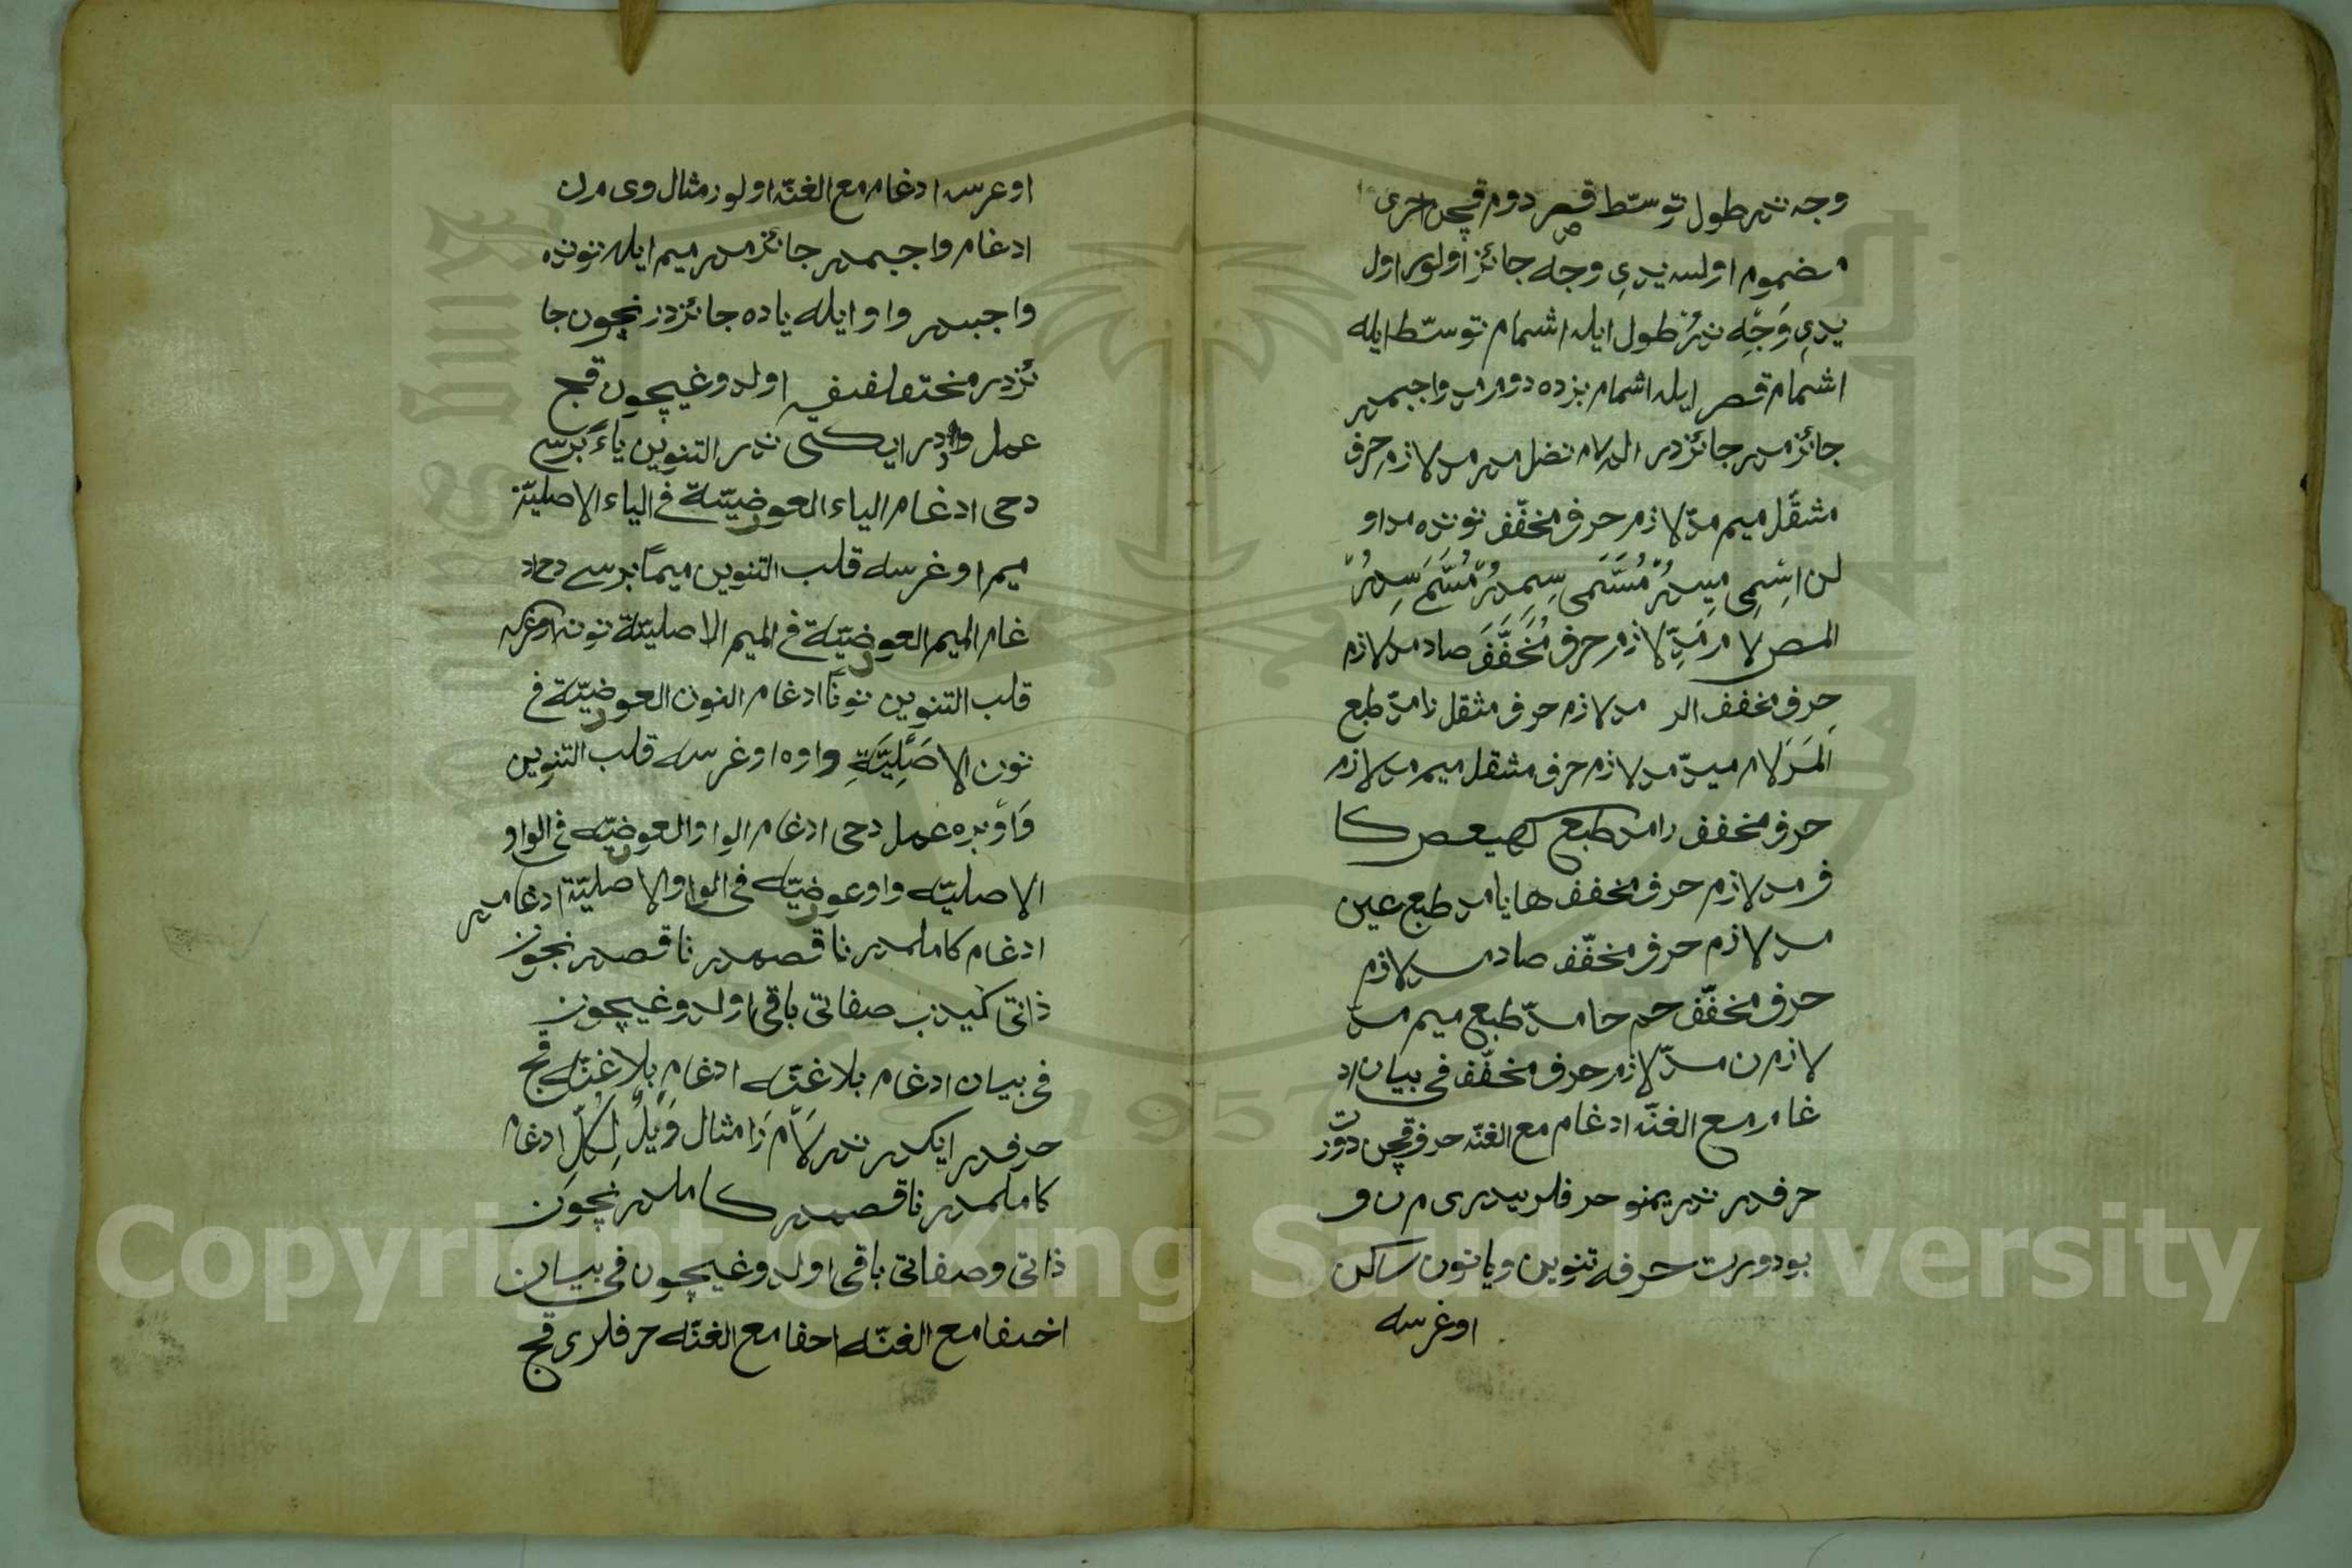 وجه ندر طول توسّط قصر دوم قچن اخرى
مضموم اولسه يدى وجه جائز اولور اول
يدى وَجْه نَدُر طول ايله اشمام توسّط ايله
اشمام قصر ايله اشمام بزده دوم واجبمدر
جائزمدر جائزدر الم لام نضل مدر مد لازم حرف
مثقّل ميم مدّ لازم حرف مخفّف نونده مد او
لن اسْمِى مِيدُر مُسَمَّى سِمِدُر مُسَمَّى سِدُر
المص لام مَدّ لازم حرف مُخَفَّفَ صاد مد لازم
حرف مخفف الر مد لازم حرف مثقل را مدّ طبع
الَمَر لام ميدّ مد لازم حرف مثقل ميم مد لازم
حرف مخفف را مد طبع كهيعص كا
ف مد لازم حرف مخفف ها يا مد طبع عين
مد لازم حرف مخفّف صاد مد لازم
حرف مخفّف حم حا مدّ طبع ميم مدّ
لازم ن مدّ لازم حرف مخفّف فى بيان اد
غام مع الغنّه ادغام مع الغنّه حرف قچن دورت
حرفدر ندر يمنو حرفلريدر ى م ن و
بو دورت حرفه تنوين ويا نون ساكن
اوغرسه
اوعرسه ادغام مع الغنّه اولور مثال وى م ر ل ن
ادغام واجبمدر جائزمدر ميم ايله نونده
واجبدر واو ايله ياده جائزدر نچون جا
ئزدر مختلف فيه اولدوغيچون قچ
عمل واردر ايكى ندر التنوين ياءً برسى
دحى ادغام الياء العوضيّة فى الياء الاصليّة
ميم اوغرسه قلب التنوين ميمًا برسى دحى اد
غام الميم العوضيّة فى الميم الاصليّة نونه اوغرسه
قلب التنوين نونًا ادغام النون العوضيّة فى
نون الاصَلِيَّةِ واوه اوغرسه قلب التنوين
وَاوً بره عمل دحى ادغام الواو العوضيّه فى الواو
الاصليّه واو عوضيّه فى الواو الاصليّة ادغامدر
ادغام كاملمدر ناقصمدر ناقصدر نچون
ذاتى كيدب صفاتى باقى اولدوغيچون
فى بيان ادغام بلا غنّه ادغام بلا غنّه قچ
حرفدر ايكدر ندر لَام رَا مثال وَيْلٌ لِكُلِّ ادغام
كاملمدر ناقصمدر كاملدر نچون
ذاتى وصفاتى باقى اولدوغيچون فى بيان
اخفا مع الغنّه احفا مع الغنّه حرفلرى قچ
Copyright © King Saud University
1957